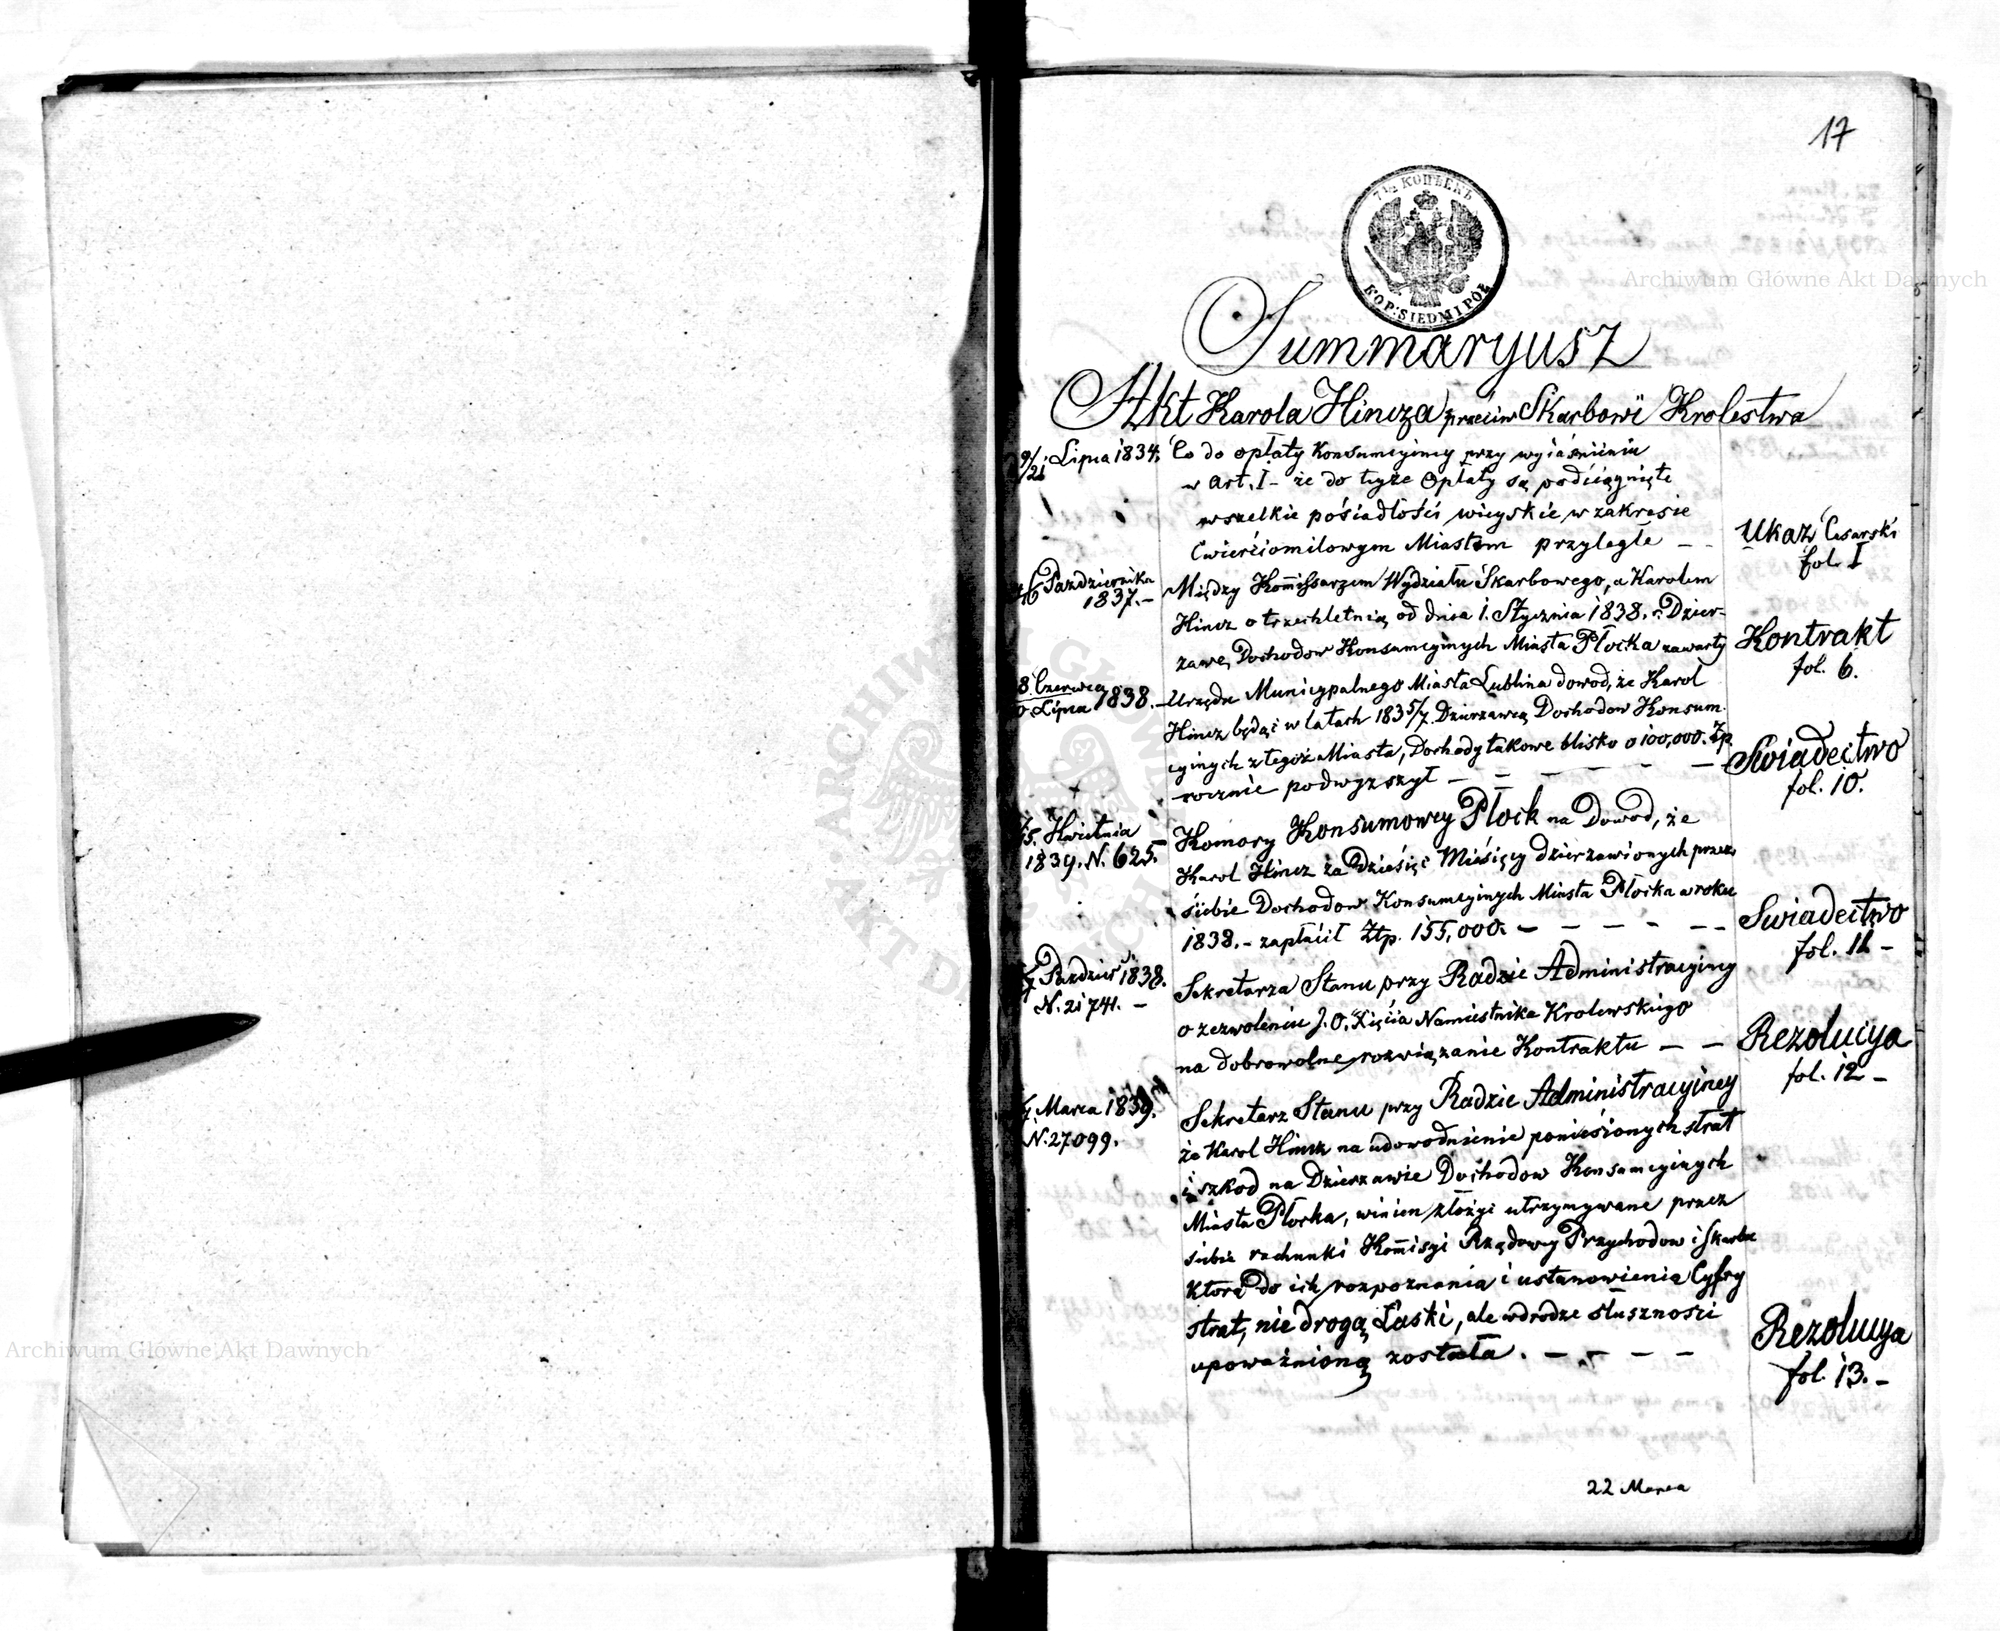 17
7 1/2 КОПѢЕКЪ
KOP: SIEDM I PÓŁ
Summaryusz
Akt Karola Hincza przeciw Skarbowi Krolestwa
9/21 Lipca 1834,
Co do opłaty Konsumcyiney przy wyiaśnieniu
w Art. I – że do teyże Opłaty są podciągnięte
wszelkie pośiadłości wieyskie w zakresie
Cwierćiomilowym Miastom przyległe – –
Ukaz Cesarski
fol. I
Pazdziernika
1837. –
Między Kom̄issarzem Wydziału Skarbowego, a Karolem
Hincz o trzechletnią od dnia 1. Stycznia 1838. r. Dzier-
zawę Dochodow Konsumcyinych Miasta Płocka zawarty
Kontrakt
fol. 6.
8 Czerwca
Lipca 1838. –
Urzędu Municypalnego Miasta Lublina dowod, że Karol
Hincz będąc w latach 1835/7 Dzierzawcą Dochodow Konsum
cyinych z tegoż Miasta, Dochody takowe blisko o 100,000. Zp
rocznie podwyzszył – – – – – –
Swiadectwo
fol. 10.
Kwietnia
1839. N. 625.
Komory Konsumowey Płock na Dowod, że
Karol Hincz za Dziesięć Miesięcy dzierzawionych przez
siebie Dochodow Konsumcyinych Miasta Płocka w roku
1838. – zapłacił Złp. 155,000. – – – – – –
Swiadectwo
fol. 11 –
Pazdzier 1838.
N. 21741. –
Sekretarza Stanu przy Radzie Administracyiney
o zezwoleniu J. O. Xięcia Namiestnika Krolewskiego
na dobrowolne rozwiązanie Kontraktu – –
Rezolucya
fol. 12 –
Marca 1839.
N. 27099.
Sekretarz Stanu przy Radzie Administracyiney
że Karol Hincz na udowodnienie poniesionych strat
i szkod na Dzierzawie Dochodow Konsumcyinych
Miasta Płocka, winien złożyć utrzymywane przez
siebie rachunki Kom̄isyi Rządowey Przychodow i Skarbu
ktora do ich rozpoznania i ustanowienia Cyfry
strat, nie drogą Łaski, ale w drodze słuszności
upoważnioną została. – – – –
Rezolucya
fol. 13. –
22 Marca
Archiwum Główne Akt Dawnych
Archiwum Główne Akt Dawnych